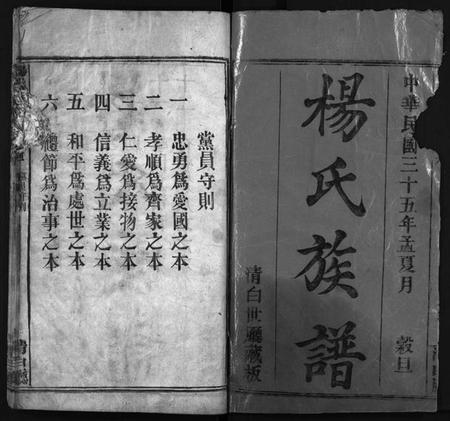 中華民國三十五年孟夏月 穀旦
楊氏族譜
清白世廳藏板
黨員守則
一 忠勇爲愛國之本
二 孝順爲齊家之本
三 仁愛爲接物之本
四 信義爲立業之本
五 和平爲處世之本
六 禮節爲治事之本